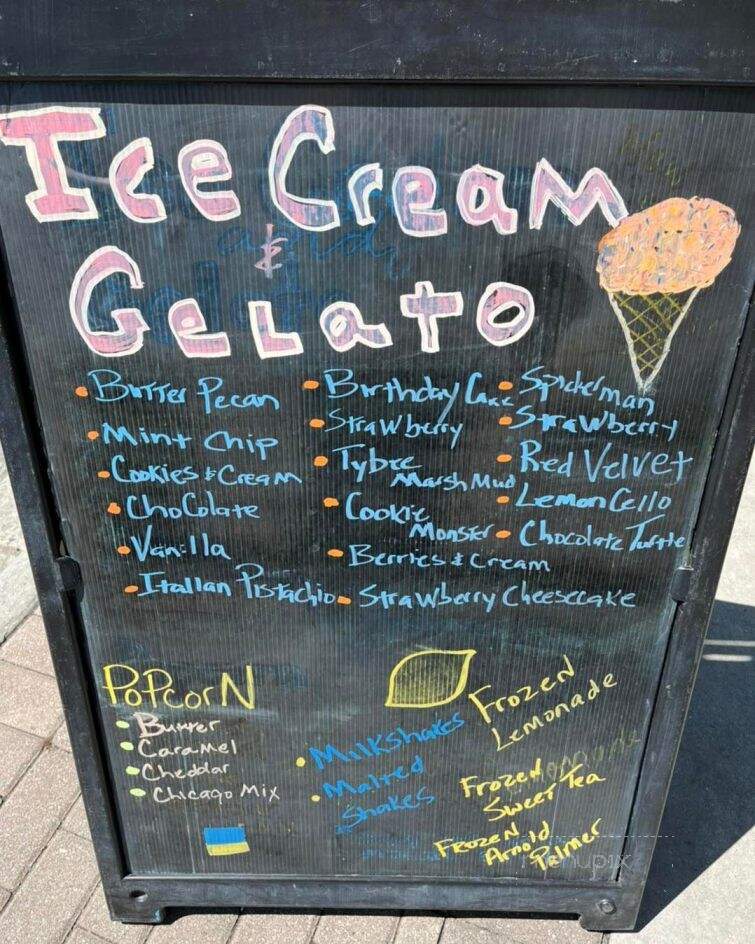 Ice Cream
&
Gelato
Butter Pecan
Mint Chip
Cookies & Cream
Chocolate
Vanilla
Italian Pistachio
Birthday Cake
Strawberry
Tybee
Marsh Mud
Cookie
Monster
Berries & Cream
Strawberry Cheesecake
Spiderman
Strawberry
Red Velvet
LemonCello
Chocolate Turtle
Popcorn
Butter
Caramel
Cheddar
Chicago Mix
Milkshakes
Malted
Shakes
Frozen
Lemonade
Frozen
Sweet Tea
Frozen
Arnold
Palmer
menupix